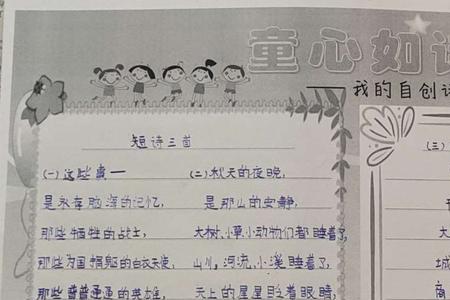 童心如诗
我的自创诗
短诗三首
(一)这些真一
是永存脑海的记忆,
那些牺牲的战士,
那些为国捐躯的白衣天使,
那些普普通通的英雄,
(二)秋天的夜晚,
是那山的安静,
大树、小草、小动物们都睡着了,
山川、河流、小溪睡着了,
天上的星星目之着眼睡,
(三)
大
城
商